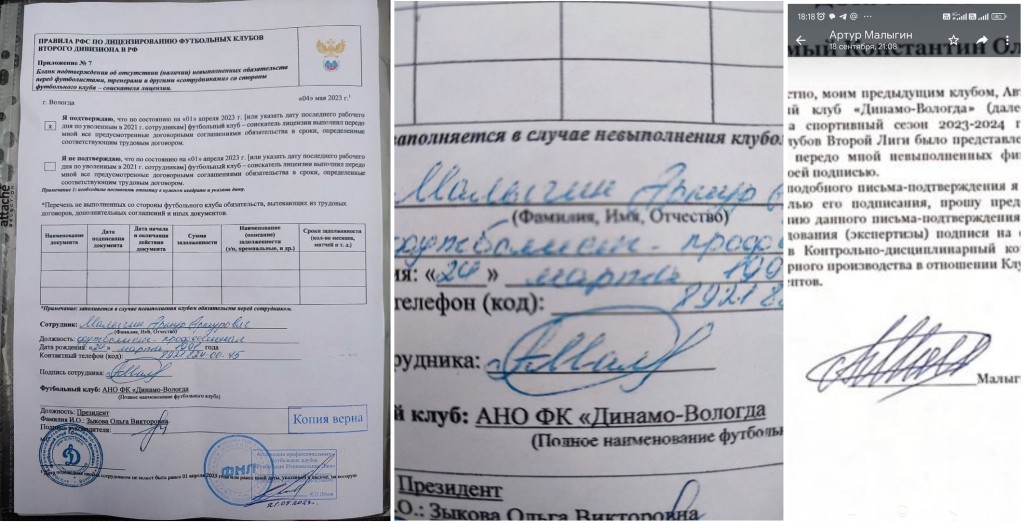 ПРАВИЛА РФС ПО ЛИЦЕНЗИРОВАНИЮ ФУТБОЛЬНЫХ КЛУБОВ
ВТОРОГО ДИВИЗИОНА В РФ
Приложение № 7
Бланк подтверждения об отсутствии (наличии) невыполненных обязательств
перед футболистами, тренерами и другими «сотрудниками» со стороны
футбольного клуба – соискателя лицензии.
г. Вологда
«04» мая 2023 г.¹
x
Я подтверждаю, что по состоянию на «01» апреля 2023 г. [или указать дату последнего рабочего
дня по уволенным в 2021 г. сотрудникам] футбольный клуб – соискатель лицензии выполнил передо
мной все предусмотренные договорными соглашениями обязательства в сроки, определенные
соответствующим трудовым договором.
Я не подтверждаю, что по состоянию на «01» апреля 2023 г. [или указать дату последнего рабочего
дня по уволенным в 2021 г. сотрудникам] футбольный клуб – соискатель лицензии выполнил передо
мной все предусмотренные договорными соглашениями обязательства в сроки, определенные
соответствующим трудовым договором.
Примечание 1: необходимо поставить отметку в нужном квадрате и указать дату.
*Перечень не выполненных со стороны футбольного клуба обязательств, вытекающих из трудовых
договоров, дополнительных соглашений и иных документов.
Наименование документа
Дата подписания документа
Дата начала и окончания действия документа
Сумма задолженности
Наименование (описание) задолженности (з/п, премиальные, и др.)
Сроки задолженности (кол-во месяцев, матчей и т. д.)
*Примечание: заполняется в случае невыполнения клубом обязательств перед сотрудником.
Сотрудник: Малыгин Артур Артурович
(Фамилия, Имя, Отчество)
Должность: футболист-профессионал
Дата рождения: «20» марта 1991 года
Контактный телефон (код):
Подпись сотрудника:
Футбольный клуб: АНО ФК «Динамо-Вологда
(Полное наименование футбольного клуба)
Должность: Президент
Фамилия И.О.: Зыкова Ольга Викторовна
Подпись руководителя:
Копия верна
ФНЛ
заполняется в случае невыполнения клубо
Малыгин Артур
(Фамилия, Имя, Отчество)
футболист-проф
ия: «20» марта 199
телефон (код): 8921 8
рудника:
й клуб: АНО ФК «Динамо-Вологда
(Полное наименование футболь
Президент
.О.: Зыкова Ольга Викторовна
18:18
Артур Малыгин
18 сентября, 21:08
мый Константин Ол
стно, моим предыдущим клубом, Ав
ый клуб «Динамо-Вологда» (дале
а спортивный сезон 2023-2024 г
лубов Второй Лиги было представле
передо мной невыполненных фин
оей подписью.
подобного письма-подтверждения я
лью его подписания, прошу пред
нию данного письма-подтверждения
дования (экспертизы) подписи на
в Контрольно-дисциплинарный ко
рного производства в отношении Клу
ентов.
Малыг